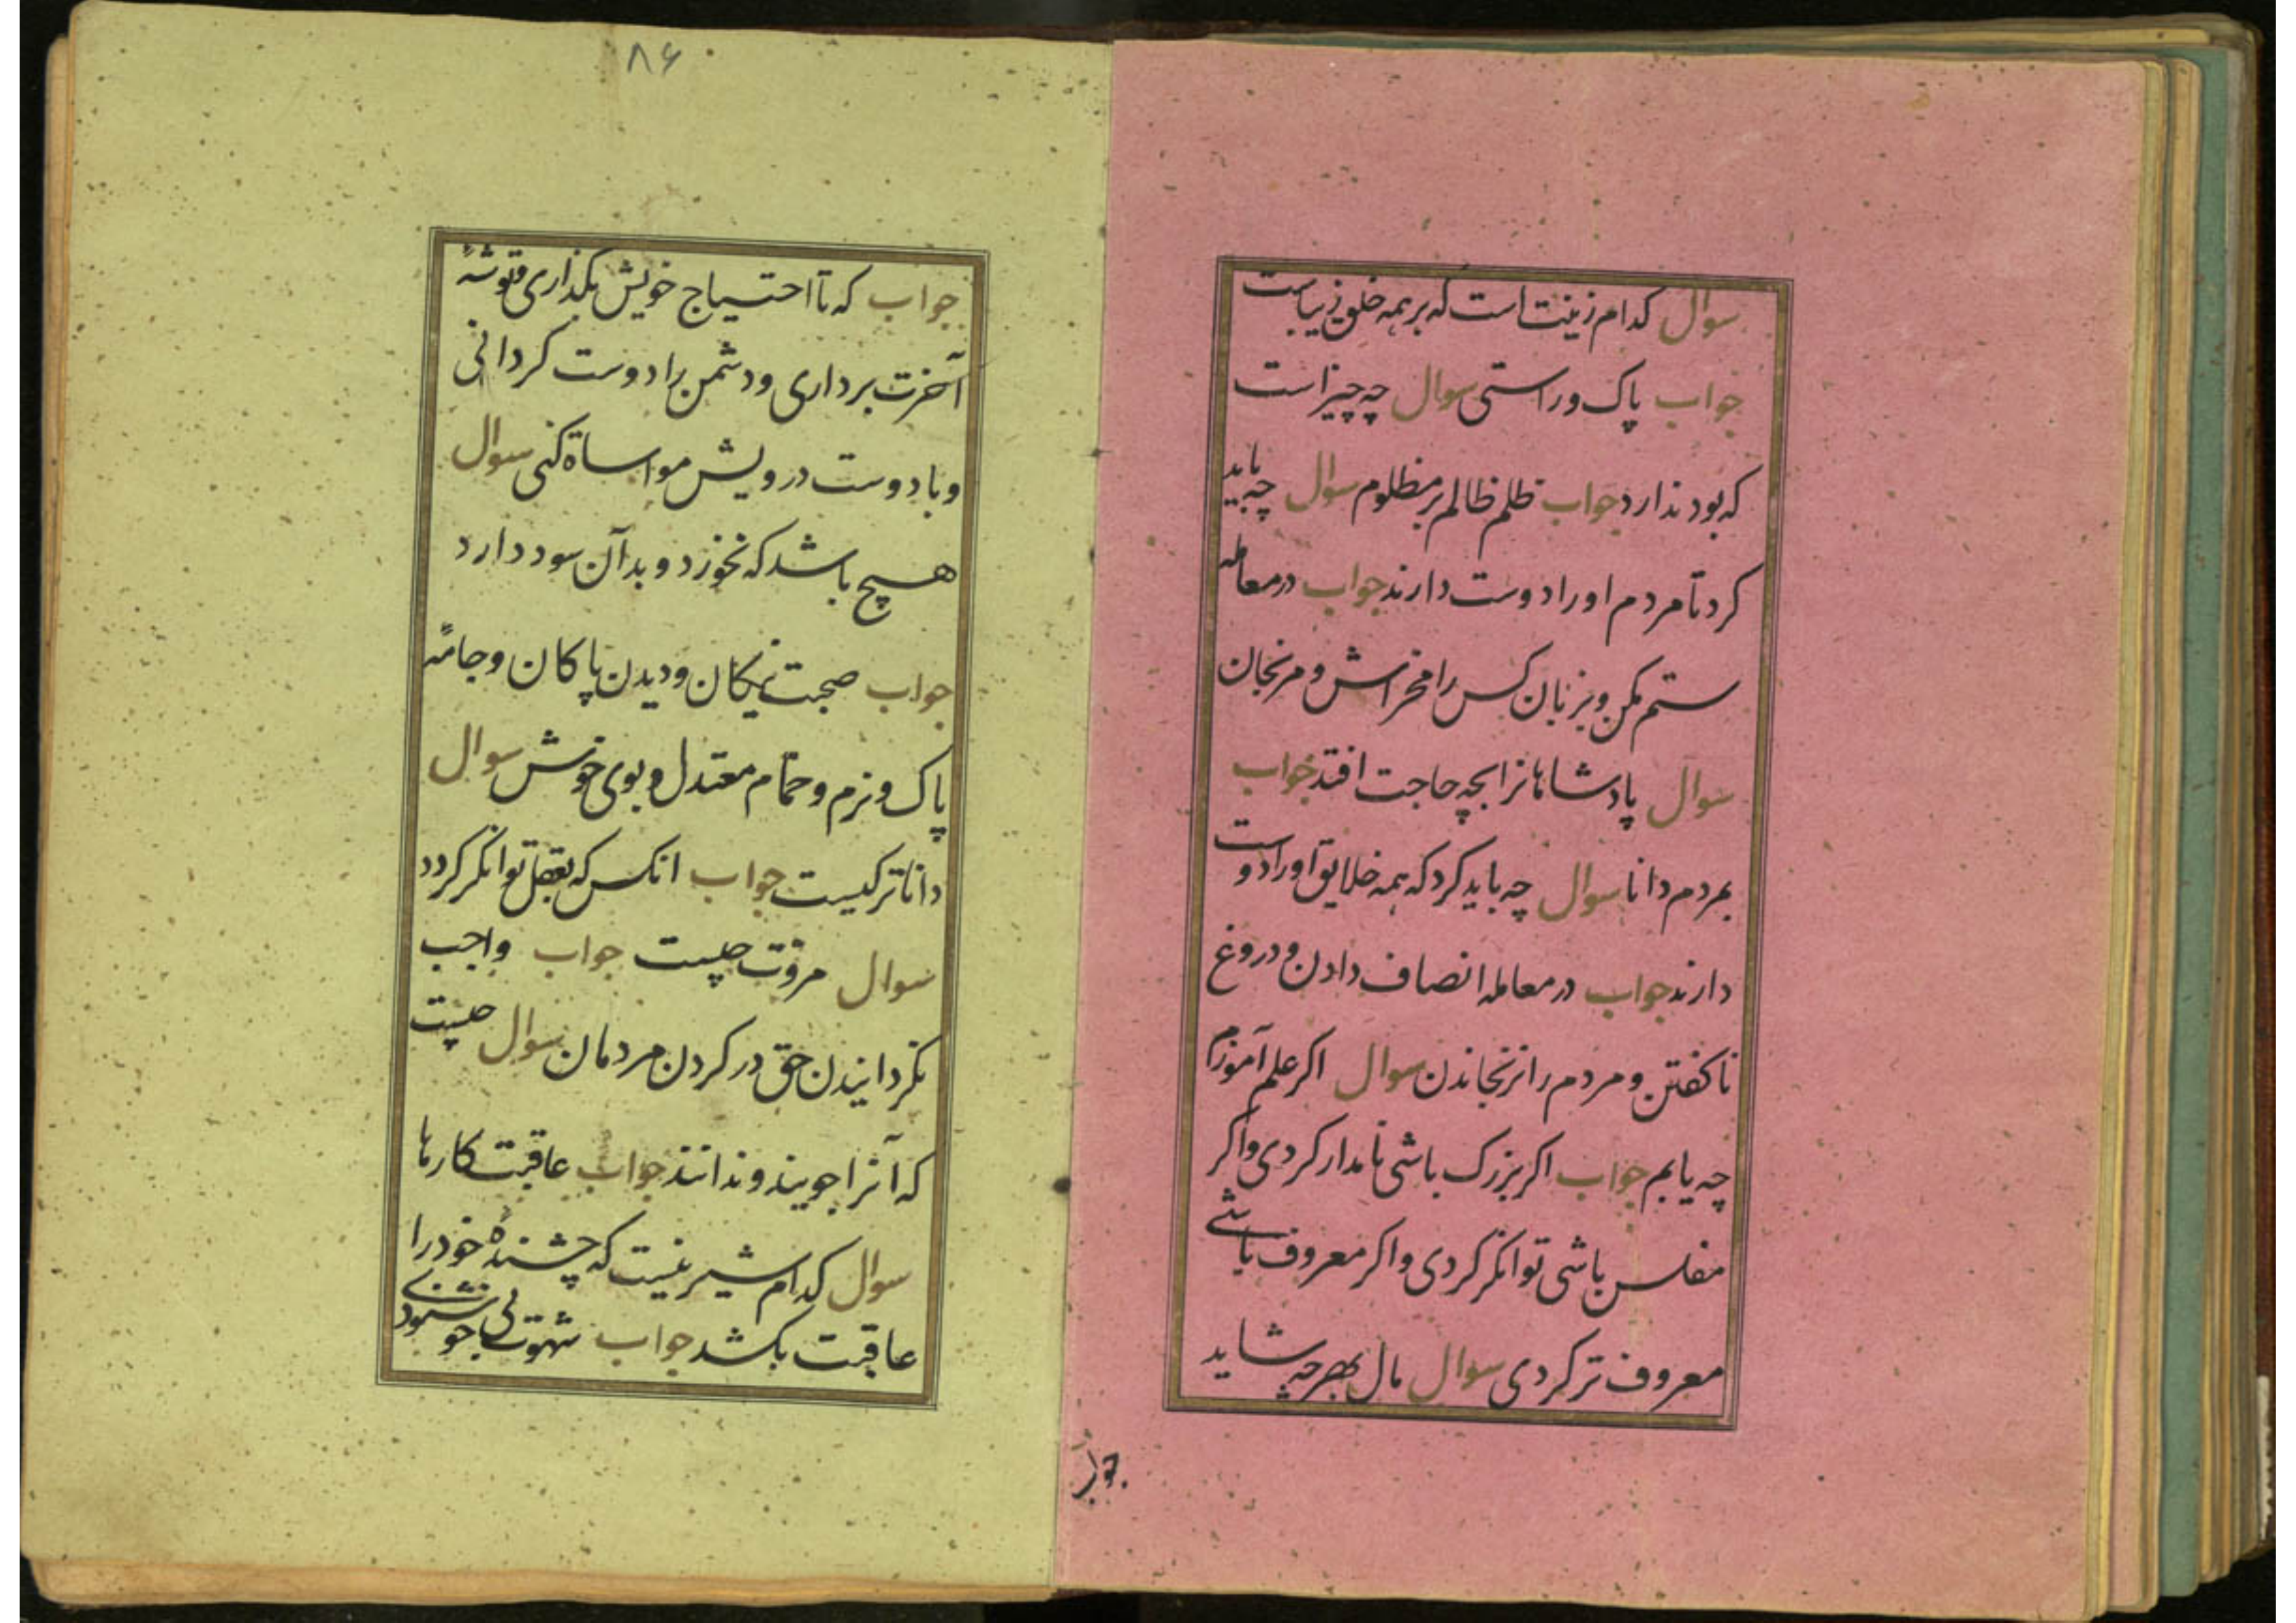 سوال کدام زینت است که بر همه خلق زیباست
جواب پاک و راستی سوال چه چیز است
که بود ندارد جواب ظلم ظالم بر مظلوم سوال چه باید
کرد تا مردم او را دوست دارند جواب در معامله
ستم مکن و بزبان کس را مخراش و مرنجان
سوال پادشاهانرا بچه حاجت افتد جواب
بمردم دانا سوال چه باید کرد که همه خلایق او را دوست
دارند جواب در معامله انصاف دادن و دروغ
ناکفتن و مردم را نرنجاندن سوال اکر علم آموزم
چه یابم جواب اکر بزرک باشی نامدار کردی و اکر
مفلس باشی توانکر کردی و اکر معروف باشی
معروف تر کردی سوال مال بهر چه شاید
جواب
۸۶
جواب که تا احتیاج خویش بکذاری و توشهٔ
آخرت برداری و دشمن را دوست کردانی
و با دوست درویش مواساة کنی سوال
هیچ باشد که نخورد و بدآن سود دارد
جواب صحبت نیکان و دیدن پاکان و جامهٔ
پاک و نرم و حمّام معتدل و بوی خوش سوال
داناتر کیست جواب انکس که بعقل توانکر کردد
سوال مروّت چیست جواب واجب
نکردانیدن حق در کردن مردمان سوال چیست
که آنرا جویند و ندانند جواب عاقبت کارها
سوال کدام شیرینیست که چشندهٔ خود را
عاقبت بکشد جواب شهوت